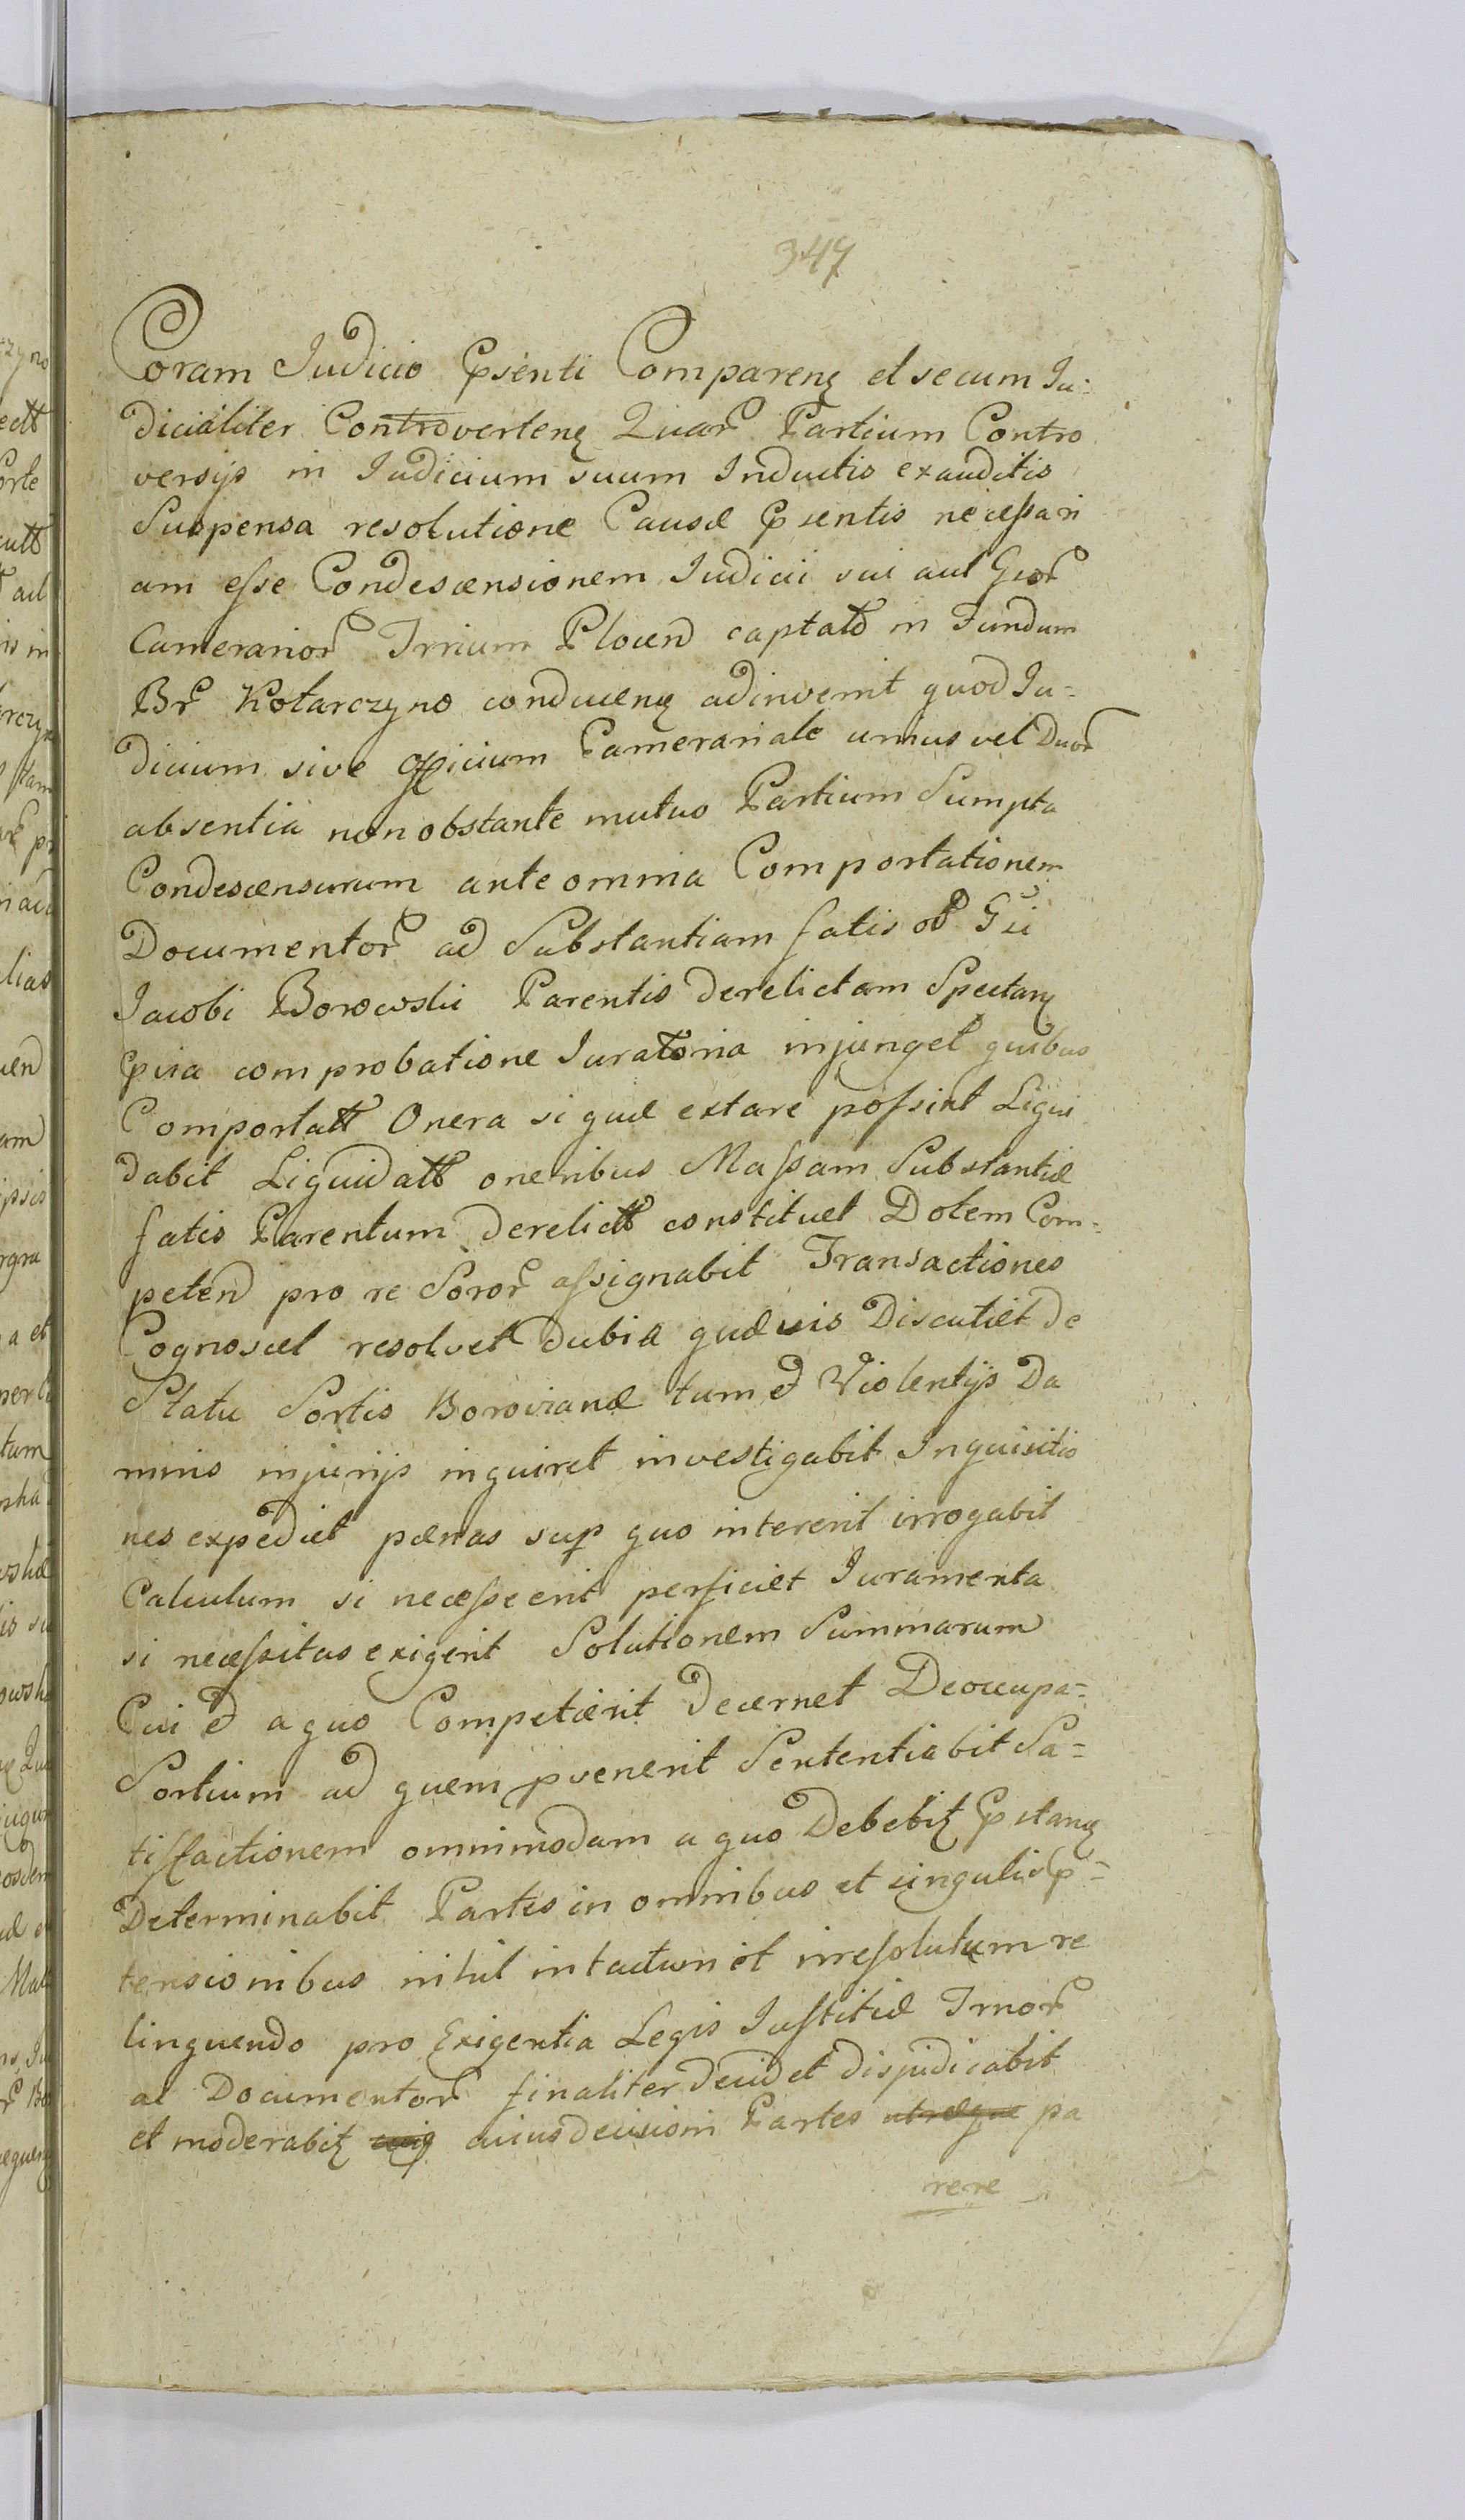 347
Coram Judicio Psenti Comparenꝭ et secum Ju-
dicialiter Controvertenꝭ Quar Partium Contro
versijs in Judicium suum Inductis exauditis
Suspensa resolutione Causæ Psentis necessari
am esse Condescensionem Judicii sui aut Gror
Camerarior Trrium Plocen captatt in Fundum
Br Kotarczyno conducenꝭ adinvenit quod Ju-
dicium sive Officium Camerariale unius vel Duor
absentia non obstante mutuo Partium Sumptu
Condescensurum ante omnia Comportationem
Documentor ad Substantiam fatis ol Gsi
Jacobi Borowski Parentis derelictam Spectanꝭ
Pvia comprobatione Juratoria injunget quibus
Comportatt Onera si quæ extare possint Liqui
dabit Liquidatt oneribus Massam Substantiæ
fatis Parentum derelictt constituet Dotem Com-
peten pro re Soror assignabit Transactiones
Cognoscet resolvet dubia quævis Discutiet de
Statu Sortis Boroviana tum et Violentijs Da
mnis injurijs inquiret investigabit Inquisitio
nes expediet pænas sup quo intererit irrogabit
Calculum si necesse erit perficiet Juramenta
si necessitas exigerit Solutionem Summarum
Cui et a quo Competierit decernet Deoccupa-
Sortium ad quem pvenerit Sententiabit Sa-
tisfactionem omnimodam a quo Debebiꝭ Pstanꝭ
Determinabit Partes in omnibus et singulis P-
tensionibus nihil intactum et irresolutum re
linquendo pro Exigentia Legis Justitiæ Trnor
ac Documentor finaliter decidet disjudicabit
et moderabiꝭ cuiꝯ cuius decisioni Partes utræque pa
rere